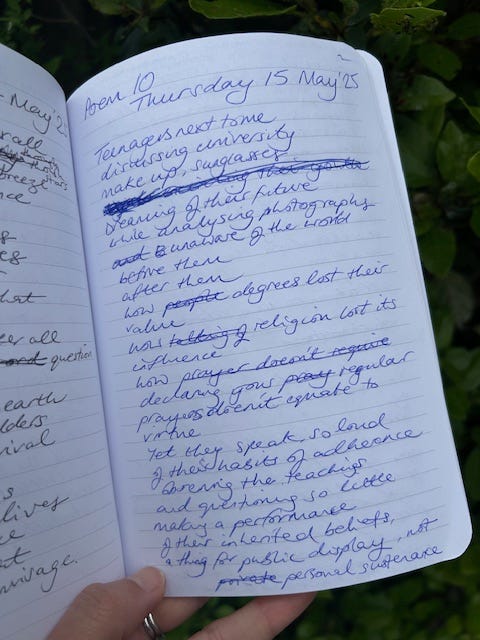 - May '2
er all
breeze
nce
hat
er all
question
earth
lders
ival
s
lives
ce
at
nvisage.
Poem 10
Thursday 15 May '25
Teenagers next to me
discussing university
make up, sunglasses
their
Dreaming of their future
while analysing photographs
and unaware of the world
before them
after them
how people degrees lost their
value
how talking of religion lost its
influence
how prayer doesn't require
declaring your pray regular
prayers doesn't equate to
virtue
Yet they speak so loud
of their habits of adherence
the teachings
and questioning so little
making a performance
of their inherited beliefs,
a thing for public display, not
private personal sustenance